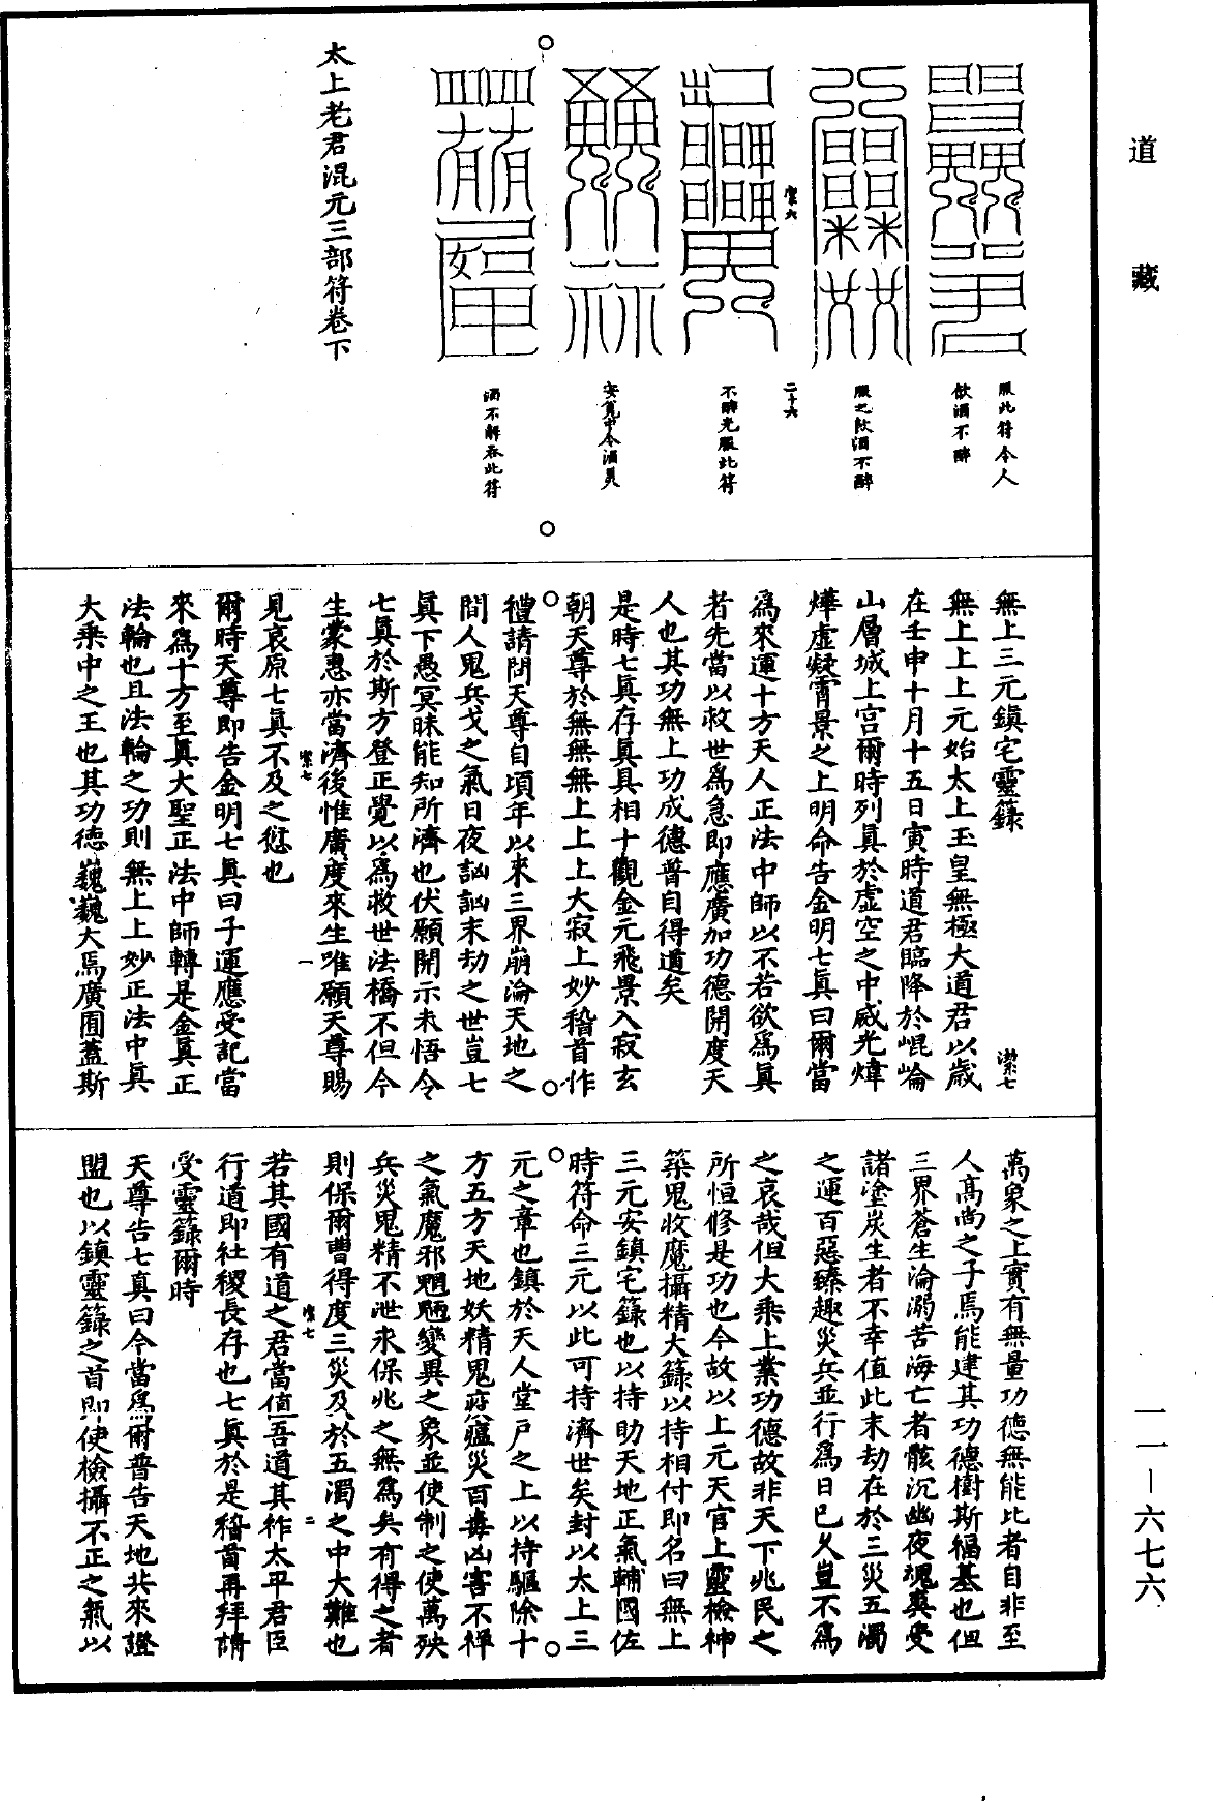 道藏
服此符令人
飲酒不醉
服之飲酒不醉
潔六
二十六
不醉先服此符
安甕中令酒美
酒不解吞此符
太上老君混元三部符卷下
無上三元鎮宅靈籙
潔七
無上上上元始太上玉皇無極大道君以歲
在壬申十月十五日寅時道君臨降於崐崘
山層城上宫爾時列真於虛空之中威光煒
燁虛凝霄景之上明命告金明七真曰爾當
為來運十方天人正法中師以不若欲為真
者先當以救世為急即應廣加功德開度天
人也其功無上功成德普自得道矣
是時七真存真具相十觀金元飛景入寂玄
朝天尊於無無無上上上大寂上妙稽首作
禮請問天尊自頃年以來三界崩淪天地之
間人鬼兵戈之氣日夜訩訩末劫之世豈七
真下愚冥昧能知所濟也伏願開示未悟令
七真於斯方登正覺以為救世法橋不但今
生蒙惠亦當濟後惟廣度來生唯願天尊賜
潔七
一
見哀原七真不及之愆也
爾時天尊即告金明七真曰子運應受記當
來為十方至真大聖正法中師轉是金真正
法輪也且法輪之功則無上上妙正法中真
大乘中之王也其功德巍巍大焉廣囿蓋斯
萬象之上實有無量功德無能比者自非至
人高尚之子焉能建其功德樹斯福基也但
三界蒼生淪溺苦海亡者骸沉幽夜魂爽受
諸塗炭生者不幸值此末劫在於三災五濁
之運百惡臻趣災兵並行為日已久豈不為
之哀哉但大乘上業功德故非天下兆民之
所恒修是功也今故以上元天官上靈檢神
築鬼收魔攝精大籙以持相付即名曰無上
三元安鎮宅籙也以持助天地正氣輔國佐
時符命三元以此可持濟世矣封以太上三
元之章也鎮於天人堂戶之上以持驅除十
方五方天地妖精鬼疫瘟災百毒凶害不祥
之氣魔邪魍魎變異之象並使制之使萬殃
兵災鬼精不泄永保兆之無為矣有得之者
則保爾曹得度三災及於五濁之中大難也
潔七
二
若其國有道之君當值吾道其祚太平君臣
行道即社稷長存也七真於是稽首再拜請
受靈籙爾時
天尊告七真曰今當為爾普告天地共來證
盟也以鎮靈籙之首即使檢攝不正之氣以
一一—六七六